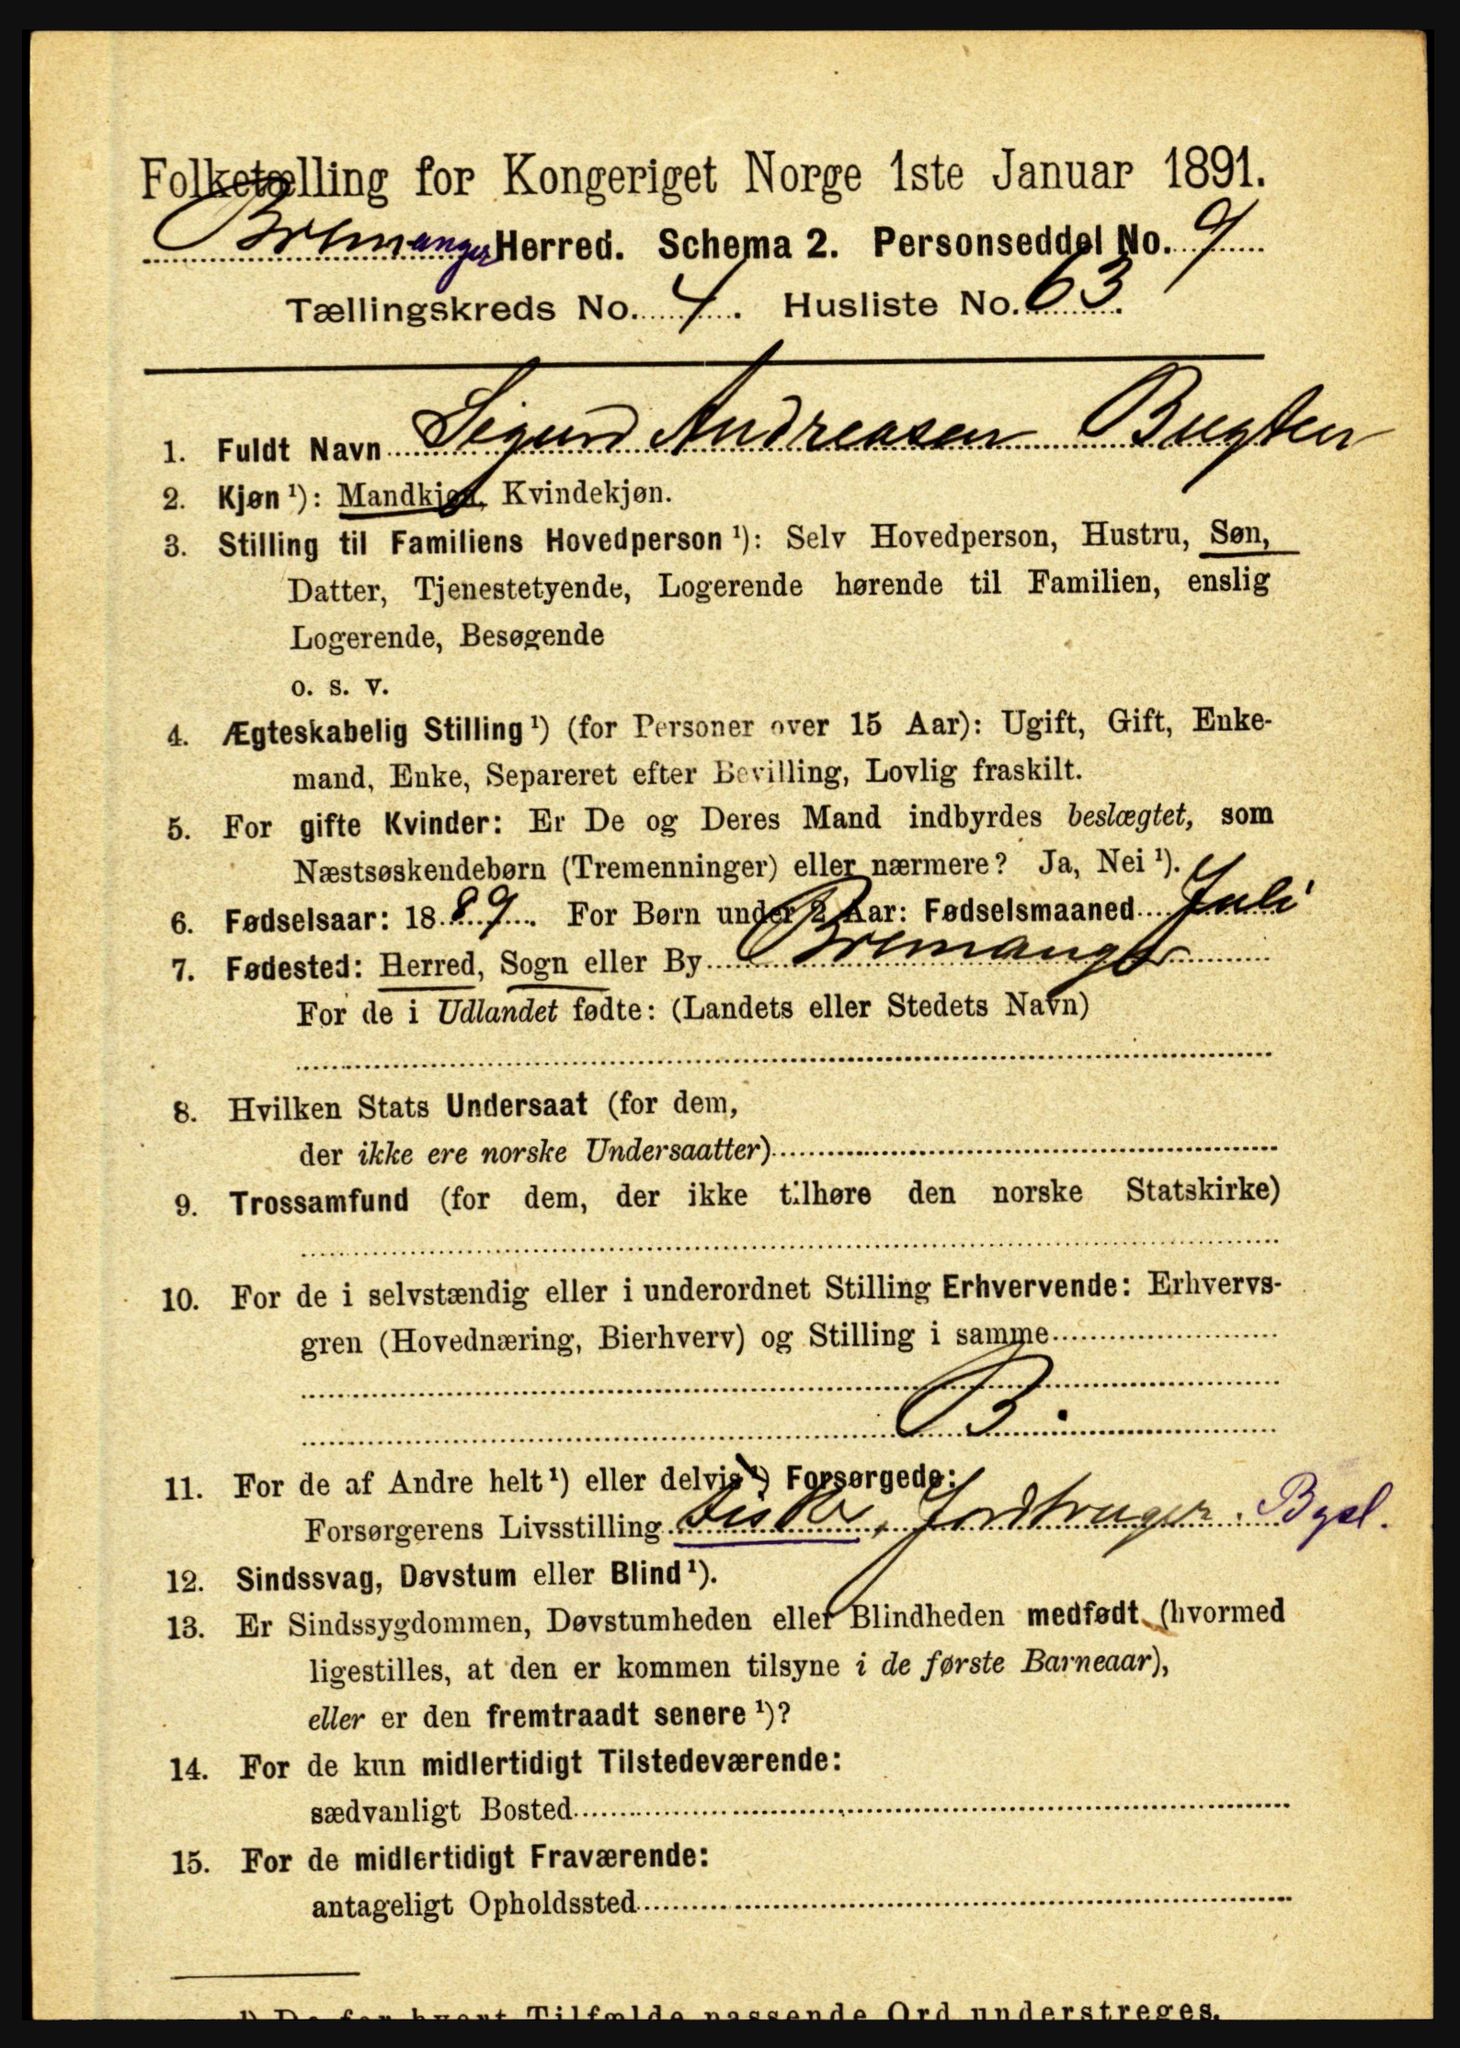 Folketælling for Kongeriget Norge 1ste Januar 1891.
Bremanger Herred. Schema 2. Personseddel No. 9
Tællingskreds No. 4. Husliste No. 63.
1. Fuldt Navn Sigurd Andreasen Bugten
2. Kjøn ¹): Mandkjøn, Kvindekjøn.
3. Stilling til Familiens Hovedperson ¹): Selv Hovedperson, Hustru, Søn,
Datter, Tjenestetyende, Logerende hørende til Familien, enslig
Logerende, Besøgende
o. s. v.
4. Ægteskabelig Stilling ¹) (for Personer over 15 Aar): Ugift, Gift, Enke-
mand, Enke, Separeret efter Bevilling, Lovlig fraskilt.
5. For gifte Kvinder: Er De og Deres Mand indbyrdes beslægtet, som
Næstsøskendebørn (Tremenninger) eller nærmere? Ja, Nei ¹).
6. Fødselsaar: 1889. For Børn under 2 Aar: Fødselsmaaned Juli
7. Fødested: Herred, Sogn eller By Bremanger
For de i Udlandet fødte: (Landets eller Stedets Navn)
8. Hvilken Stats Undersaat (for dem,
der ikke ere norske Undersaatter)
9. Trossamfund (for dem, der ikke tilhøre den norske Statskirke)
10. For de i selvstændig eller i underordnet Stilling Erhvervende: Erhvervs-
gren (Hovednæring, Bierhverv) og Stilling i samme
B.
11. For de af Andre helt ¹) eller delvis ¹) Forsørgede:
Forsørgerens Livsstilling Fisker, Jordbruger. Bysl.
12. Sindssvag, Døvstum eller Blind ¹).
13. Er Sindssygdommen, Døvstumheden eller Blindheden medfødt (hvormed
ligestilles, at den er kommen tilsyne i de første Barneaar),
eller er den fremtraadt senere ¹)?
14. For de kun midlertidigt Tilstedeværende:
sædvanligt Bosted
15. For de midlertidigt Fraværende:
antageligt Opholdssted
¹) De for hvert Tilfælde passende Ord understreges.